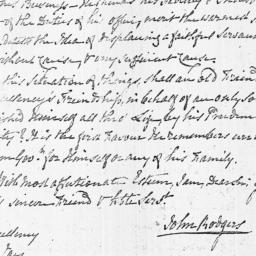 his Business
of the Duties of his office, merit the warmest
the Idea of displacing a faithful Servant
without Cause, & very sufficient Cause.
this Situation of things shall an old Friend
Friendship, in behalf of an only So
himself all thro' Life by his Pruden
ty? It is the first Favour He remembers
for Himself or any of his Family.
With most affectionate Esteem, I am, Dear Sir,
sincere Friend & hble Servt.
John Rodgers
Jay